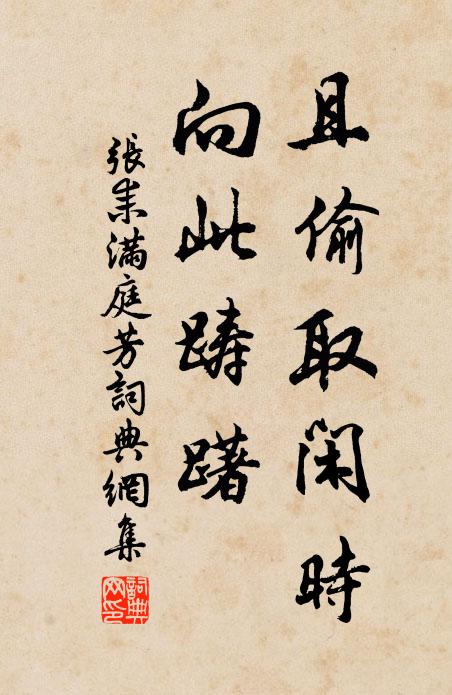 且偷取闲時
向此踌躇
張耒滿庭芳詞典網集
詞典网印